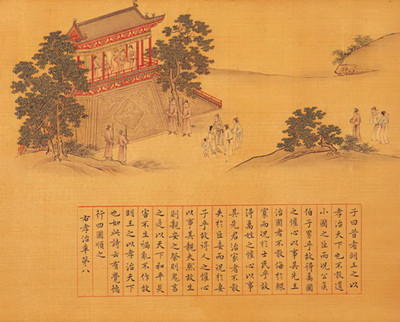 子曰昔者明王之以
孝治天下也不敢遺
小國之臣而況公侯
伯子男乎故得萬國
之懽心以事其先王
治國者不敢侮於鰥
寡而況於士民乎故
得百姓之懽心以事
其先君治家者不敢
失於臣妾而況於妻
子乎故得人之懽心
以事其親夫然故生
則親安之祭則鬼享
之是以天下和平災
害不生禍亂不作故
明王之以孝治天下
也如此詩云有覺德
行四國順之
右孝治章第八